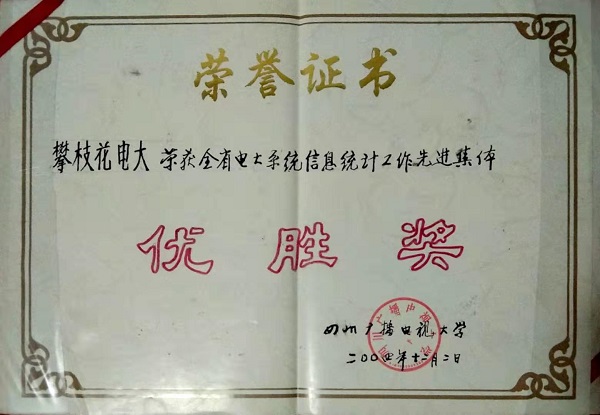 荣誉证书
攀枝花电大 荣获全省电大系统信息统计工作先进集体
优胜奖
四川广播电视大学
二00四年十二月二日